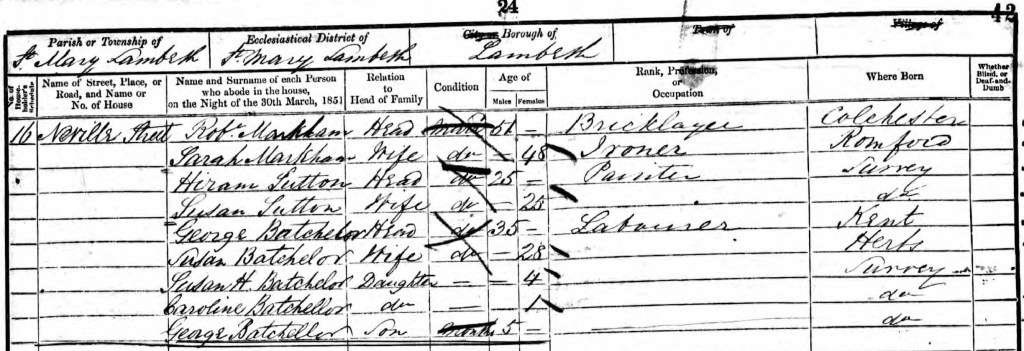 24
42
Parish or Township of Ecclesiastical District of City or Borough of Town of Village of
St Mary Lambeth St Mary Lambeth Lambeth
No. of House-holder's Schedule Name of Street, Place, or Road, and Name or No. of House Name and Surname of each Person who abode in the house, on the Night of the 30th March, 1851 Relation to Head of Family Condition Age of Males Females Rank, Profession, or Occupation Where Born Whether Blind, or Deaf-and-Dumb
16 Neville Street Robt Markham Head Mard 51 — Bricklayer Colchester
Sarah Markham Wife do — 48 Ironer Romford
Hiram Sutton Head do 25 — Painter Surrey
Susan Sutton Wife do — 25 do
George Batchelor Head do 35 — Labourer Kent
Susan Batchelor Wife do — 28 Herts
Susan H. Batchelor Daughter — — 4 Surrey
Caroline Batchellor do 1 do
George Batchellor Son Months 5 — do